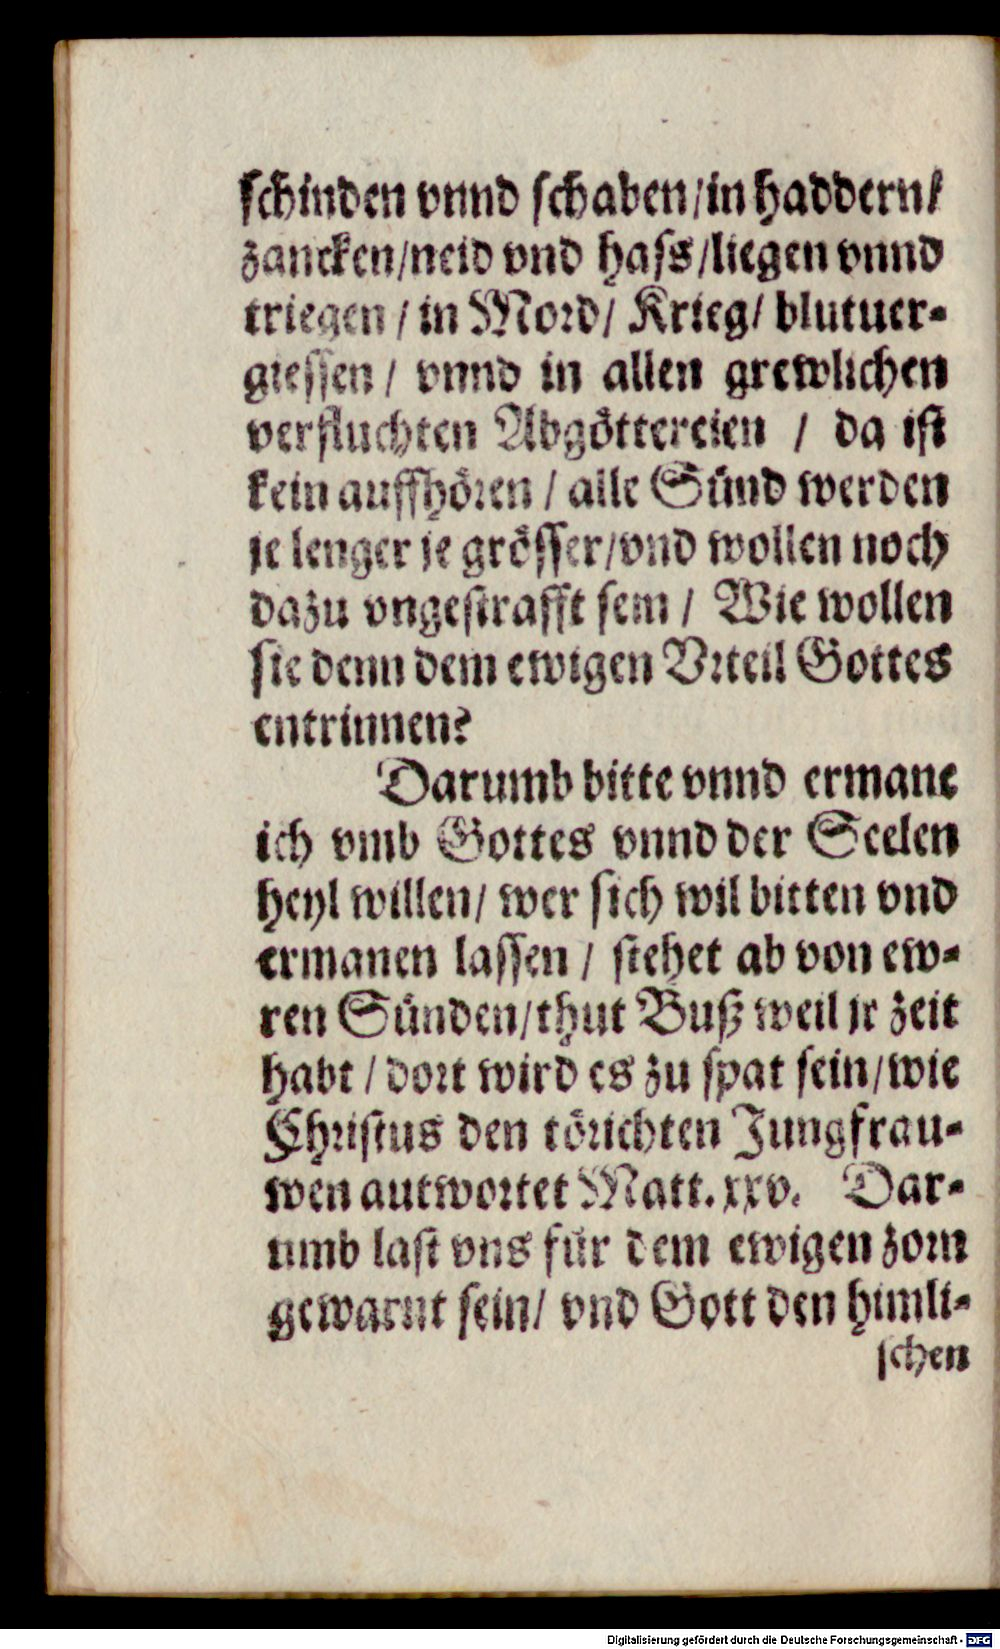 schinden vnnd schaben/in haddern/
zancken/neid vnd hass/liegen vnnd
triegen / in Mord/ Krieg/ blutuer-
giessen / vnnd in allen grewlichen
verfluchten Abgöttereien / da ist
kein auffhören / alle Sünd werden
je lenger je grösser/vnd wollen noch
dazu vngestrafft sein / Wie wollen
sie denn dem ewigen Vrteil Gottes
entrinnen?
Darumb bitte vnnd ermane
ich vmb Gottes vnnd der Seelen
heyl willen/ wer sich wil bitten vnd
ermanen lassen / stehet ab von ew-
ren Sünden/thut Buß weil jr zeit
habt / dort wird es zu spat sein/wie
Christus den törichten Jungfrau-
wen autwortet Matt. xxv. Dar-
umb last vns für dem ewigen zorn
gewarnt sein/ vnd Gott den himli-
schen
Digitalisierung gefördert durch die Deutsche Forschungsgemeinschaft - DFG